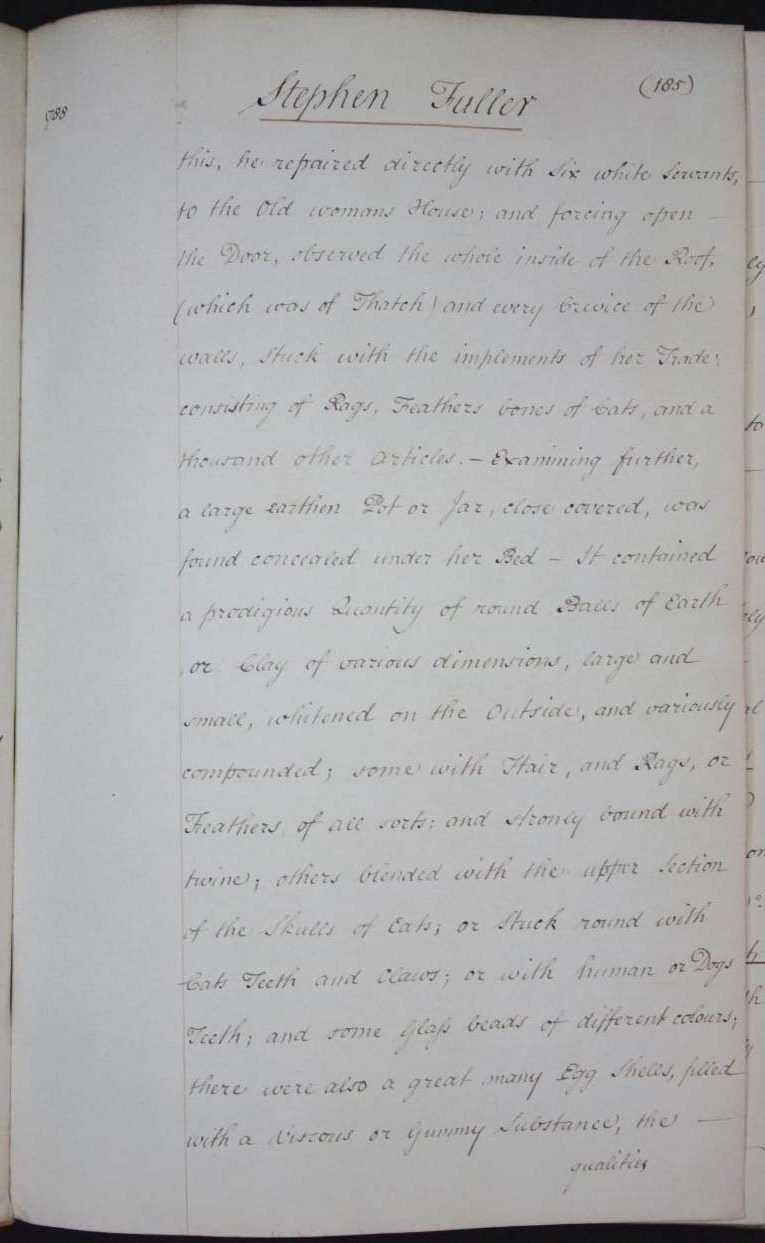 788
Stephen Fuller
(185)
this, he repaired directly with Six white Servants,
to the Old womans House; and forcing open —
the Door, observed the whole inside of the Roof,
(which was of Thatch) and every Crevice of the
walls, Stuck with the implements of her Trade;
consisting of Rags, Feathers bones of Cats, and a
thousand other Articles. — Examining further,
a large earthen Pot or Jar, close covered, was
found concealed under her Bed — It contained
a prodigious Quantity of round Balls of Earth
or Clay of various dimensions, large and
small, whitened on the Outside, and variously
compounded; some with Hair, and Rags, or
Feathers of all sorts; and stronly bound with
twine; others blended with the upper Section
of the Skulls of Cats; or Stuck round with
Cats Teeth and Claws; or with human or Dogs
Teeth; and some Glass beads of different colours;
there were also a great many Egg Shells, filled
with a Viscous or Gummy Substance, the —
qualities